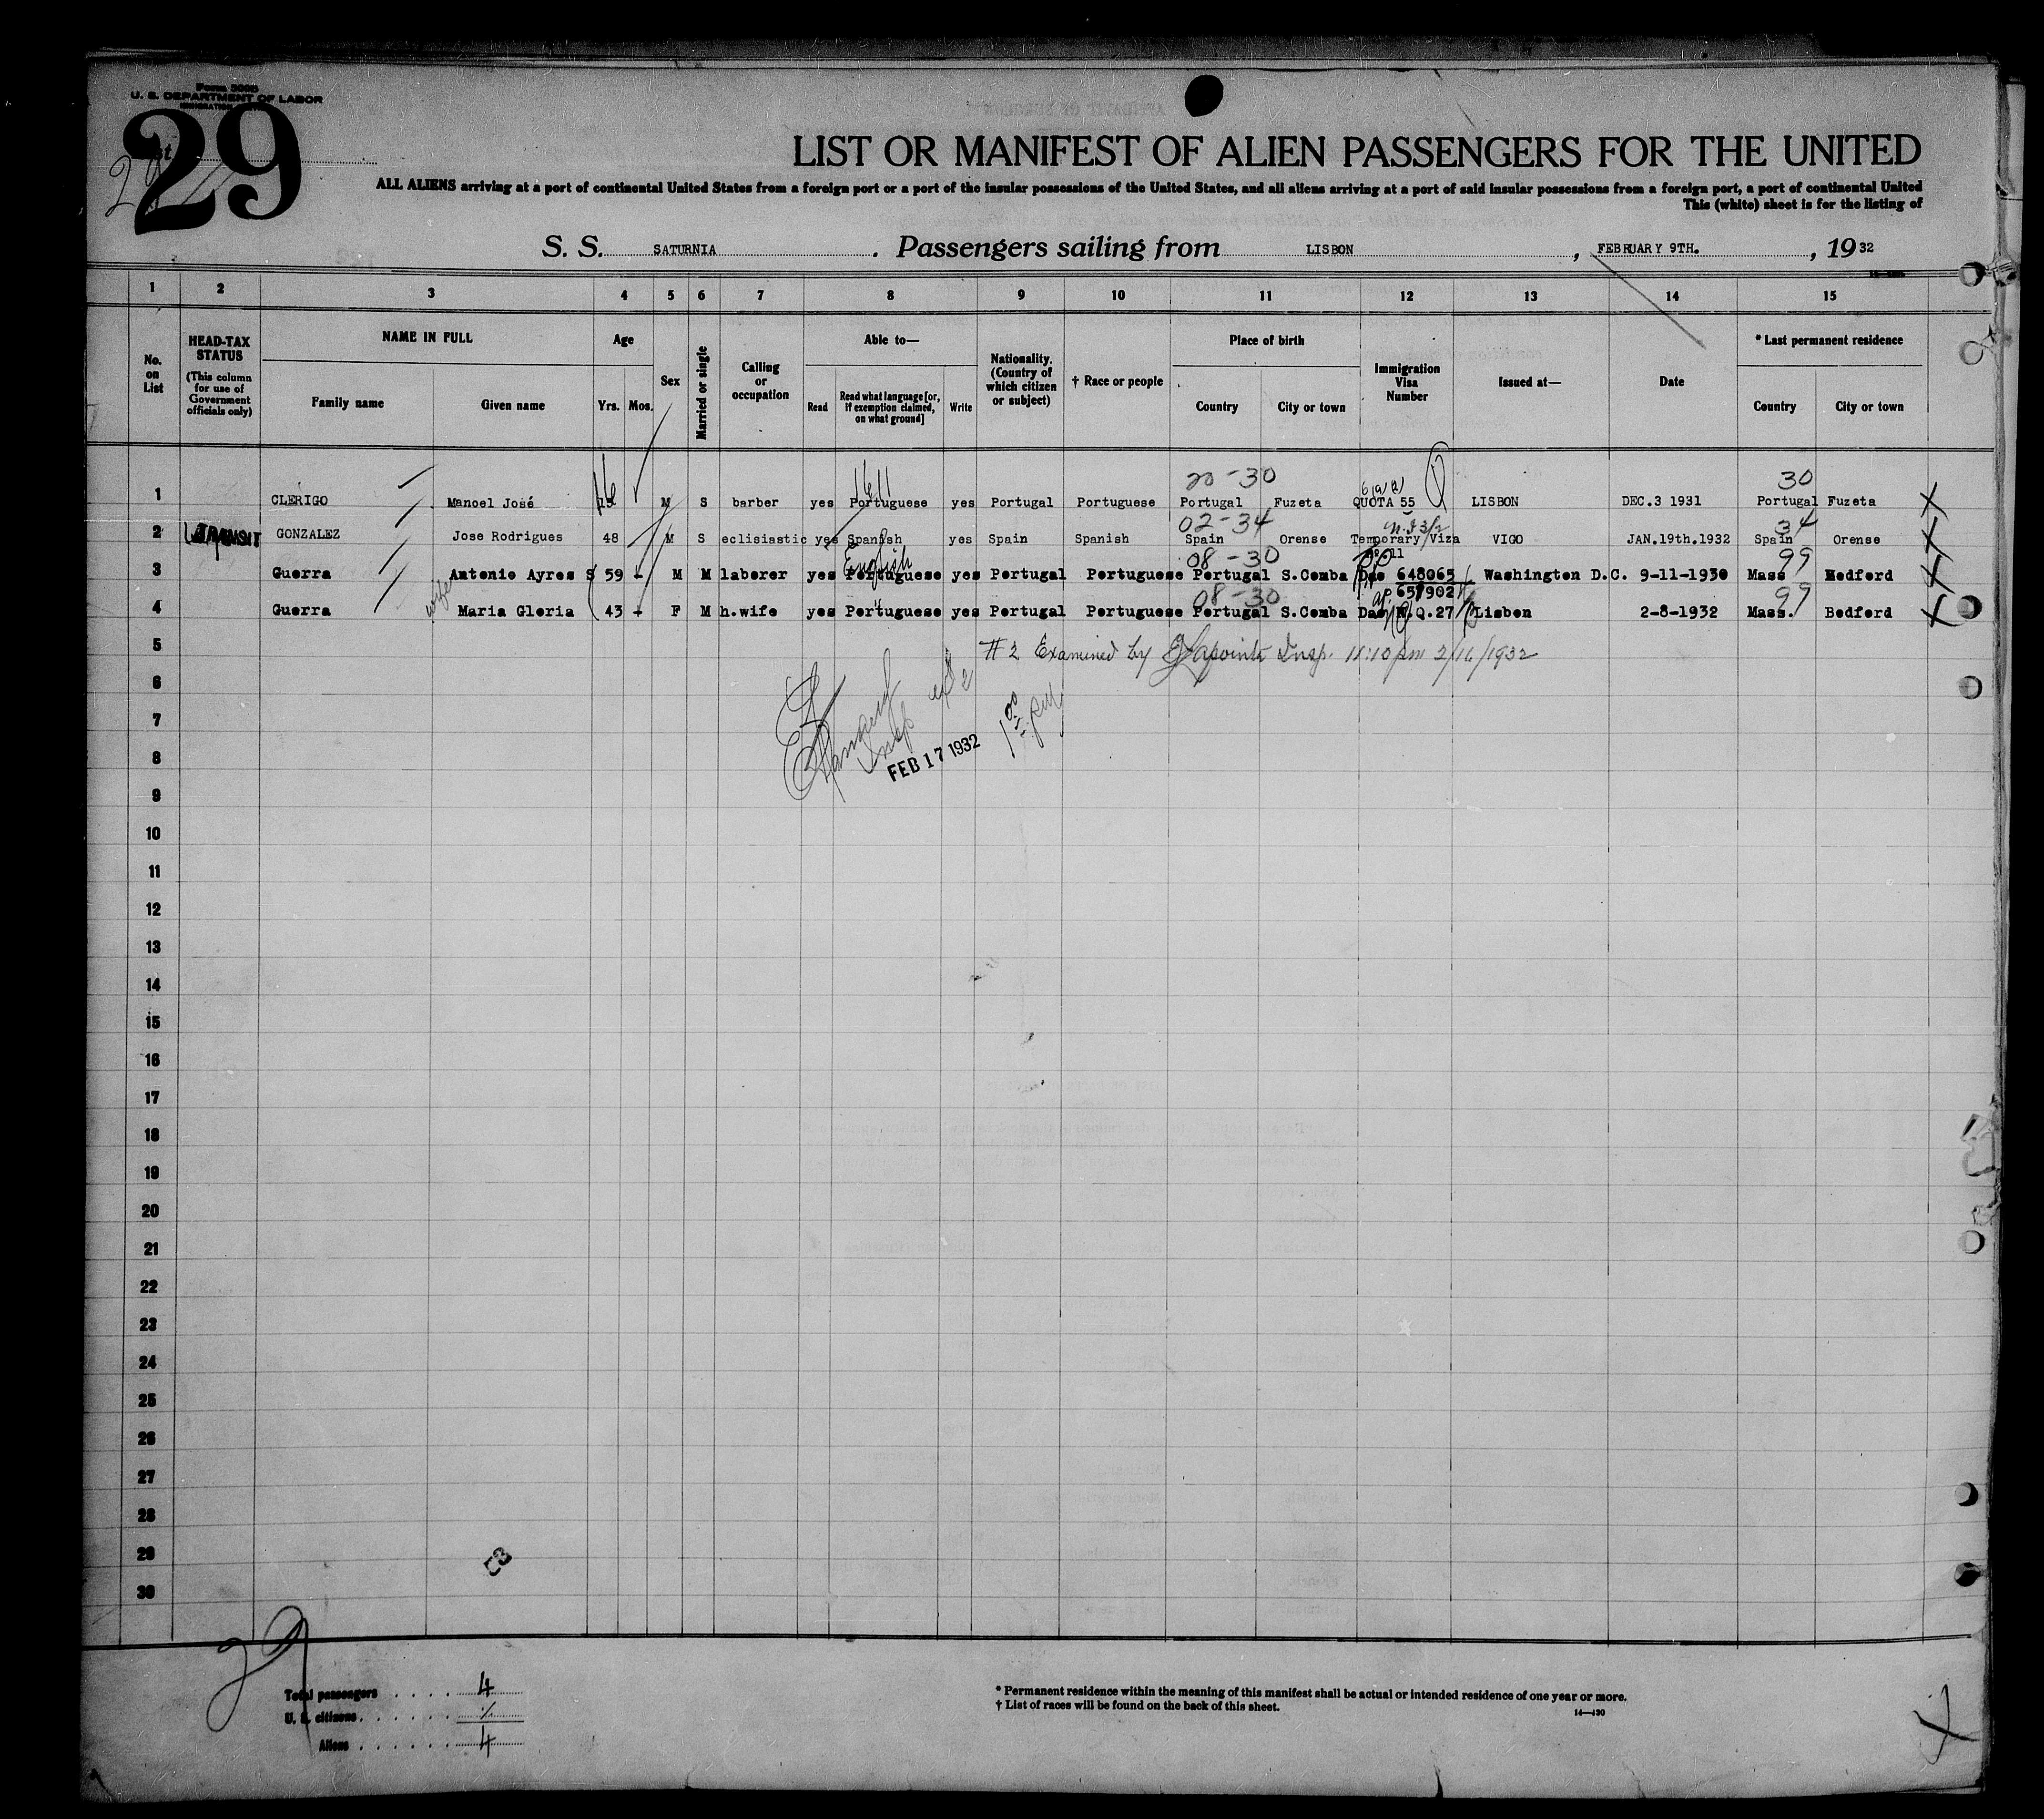 Form 500B
U. S. DEPARTMENT OF LABOR
29
LIST OR MANIFEST OF ALIEN PASSENGERS FOR THE UNITED
ALL ALIENS arriving at a port of continental United States from a foreign port or a port of the insular possessions of the United States, and all aliens arriving at a port of said insular possessions from a foreign port, a port of continental United
This (white) sheet is for the listing of
S. S. SATURNIA. Passengers sailing from LISBON, FEBRUARY 9TH., 1932
1 2 3 4 5 6 7 8 9 10 11 12 13 14 15
No. on List
HEAD-TAX STATUS (This column for use of Government officials only)
NAME IN FULL
Family name
Given name
Age
Yrs. Mos.
Sex
Married or single
Calling or occupation
Able to—
Read
Read what language [or, if exemption claimed, on what ground]
Write
Nationality. (Country of which citizen or subject)
† Race or people
Place of birth
Country
City or town
Immigration Visa Number
Issued at—
Date
* Last permanent residence
Country
City or town
20-30 30
1 CLERIGO Manoel José 16 M S barber yes Portuguese yes Portugal Portuguese Portugal Fuzeta QUOTA 55 LISBON DEC.3 1931 Portugal Fuzeta X
02-34 34
2 TRANSIT GONZALEZ Jose Rodrigues 48 M S eclisiastic yes Spanish yes Spain Spanish Spain Orense Temporary Viza VIGO JAN.19th.1932 Spain Orense X
English 08-30 99
3 Guerra Antonio Ayres S 59 - M M laborer yes Portuguese yes Portugal Portuguese Portugal S.Comba Dao 648065 Washington D.C. 9-11-1930 Mass Medford X
wife 08-30 657902 99
4 Guerra Maria Gloria 43 - F M h.wife yes Portuguese yes Portugal Portuguese Portugal S.Comba Dao N.Q.27 Lisbon 2-8-1932 Mass. Bedford X
5 #2 Examined by Lapointe Insp. 11:10 pm 2/16/1932
6
7
8
FEB 17 1932
1 00 PM
9
10
11
12
13
14
15
16
17
18
19
20
21
22
23
24
25
26
27
28
29
30
29
Total passengers . . . . 4
U. S. citizens . . . . . .
Aliens . . . . . . 4
* Permanent residence within the meaning of this manifest shall be actual or intended residence of one year or more.
† List of races will be found on the back of this sheet.
14—430
X